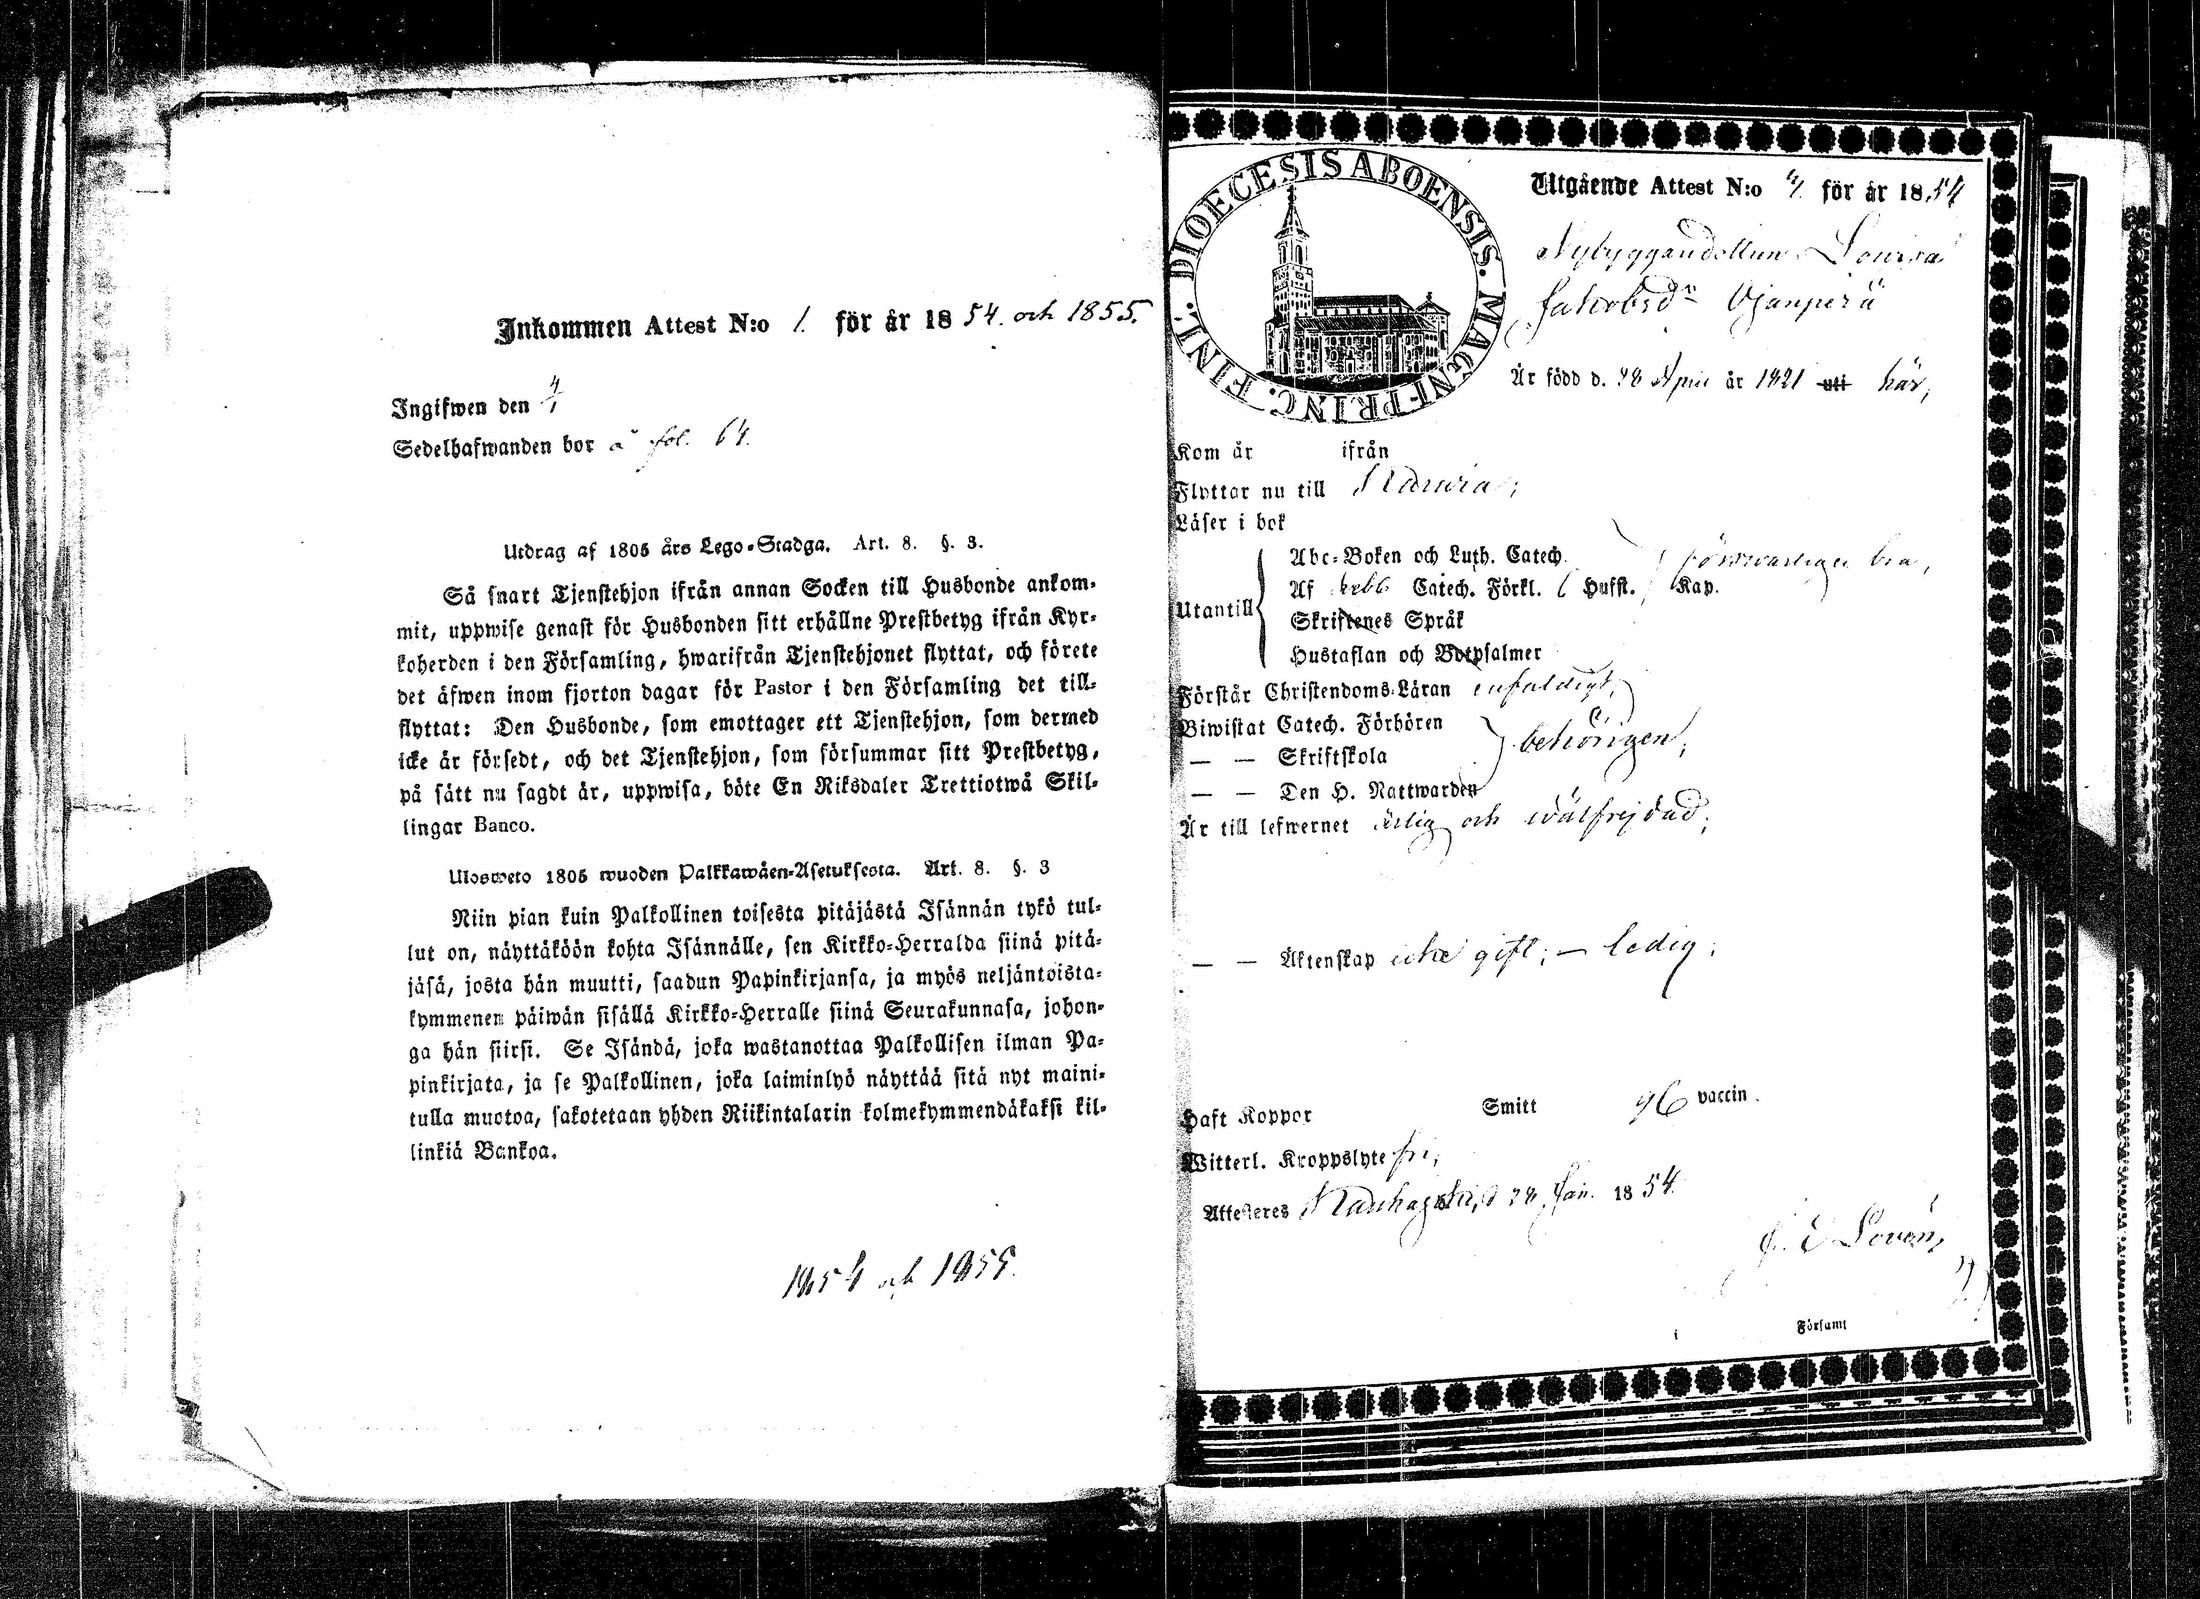 Inkommen Attest N:o 1. för år 1854. och 1855.
Ingifwen den 4/1
Sedelhafwanden bor å fol. 64.
Utdrag af 1805 års Lego-Stadga. Art. 8. §. 3.
Så snart Tjenstehjon ifrån annan Socken till Husbonde ankom-
mit, uppwise genast för Husbonden sitt erhållne Prestbetyg ifrån Kyr-
koherden i den Församling, hwarifrån Tjenstehjonet flyttat, och förete
det äfwen inom fjorton dagar för Pastor i den Församling det till-
flyttat: Den Husbonde, som emottager ett Tjenstehjon, som dermed
icke är försedt, och det Tjenstehjon, som försummar sitt Prestbetyg,
på sätt nu sagdt är, uppwisa, böte En Riksdaler Trettiotwå Skil-
lingar Banco.
Ulosweto 1805 wuoden Palkkawäen-Asetuksesta. Art. 8. §. 3
Niin pian kuin Palkollinen toisesta pitäjästä Isännän tykö tul-
lut on, näyttäköön kohta Isännälle, sen Kirkko-Herralda siinä pitä-
jäsä, josta hän muutti, saadun Papinkirjansa, ja myös neljäntoista-
kymmenen päiwän sisällä Kirkko-Herralle siinä Seurakunnasa, johon-
ga hän siirsi. Se Isändä, joka wastanottaa Palkollisen ilman Pa-
pinkirjata, ja se Palkollinen, joka laiminlyö näyttää sitä nyt maini-
tulla muotoa, sakotetaan yhden Riikintalarin kolmekymmendäkaksi kil-
linkiä Bankoa.
1854 och 1855.
DIOECESIS ABOENSIS. MAGNI PRINC. FINL.
Utgående Attest N:o 4. för år 1854
Nybyggaredottren Lovisa
Jakobsdr Ojanperä
Är född d. 28 April år 1821 uti här,
Kom år ifrån
Flyttar nu till Karvia;
Läser i bok
Utantill
Abc-Boken och Luth. Catech.
försvarligen bra,
Af Catech. Förkl. Husst. Kap.
Skriftenes Språk
Hustaflan och Botpsalmer
Förstår Christendoms-Läran enfaldigt,
Biwistat Catech. Förhören
— — Skriftskola
behörigen;
— — Den H. Nattwarden
Är till lefwernet ärlig och wälfrejdad;
— — Äktenskap icke gift; — ledig;
Haft Koppor Smitt vaccin.
Witterl. Kroppslyte fri;
Attesteres d 28 Jan. 1854.
i Församl